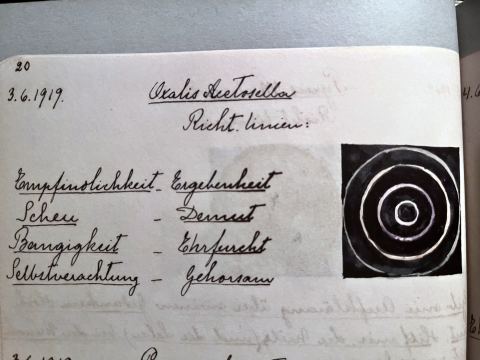 20
3.6.1919.
Oxalis Acetosella
Richt. linien:
Empfindlichkeit - Ergebenheit
Scheu - Demut
Bangigkeit - Ehrfurcht
Selbstverachtung - Gehorsam
3.6.1919
4.6